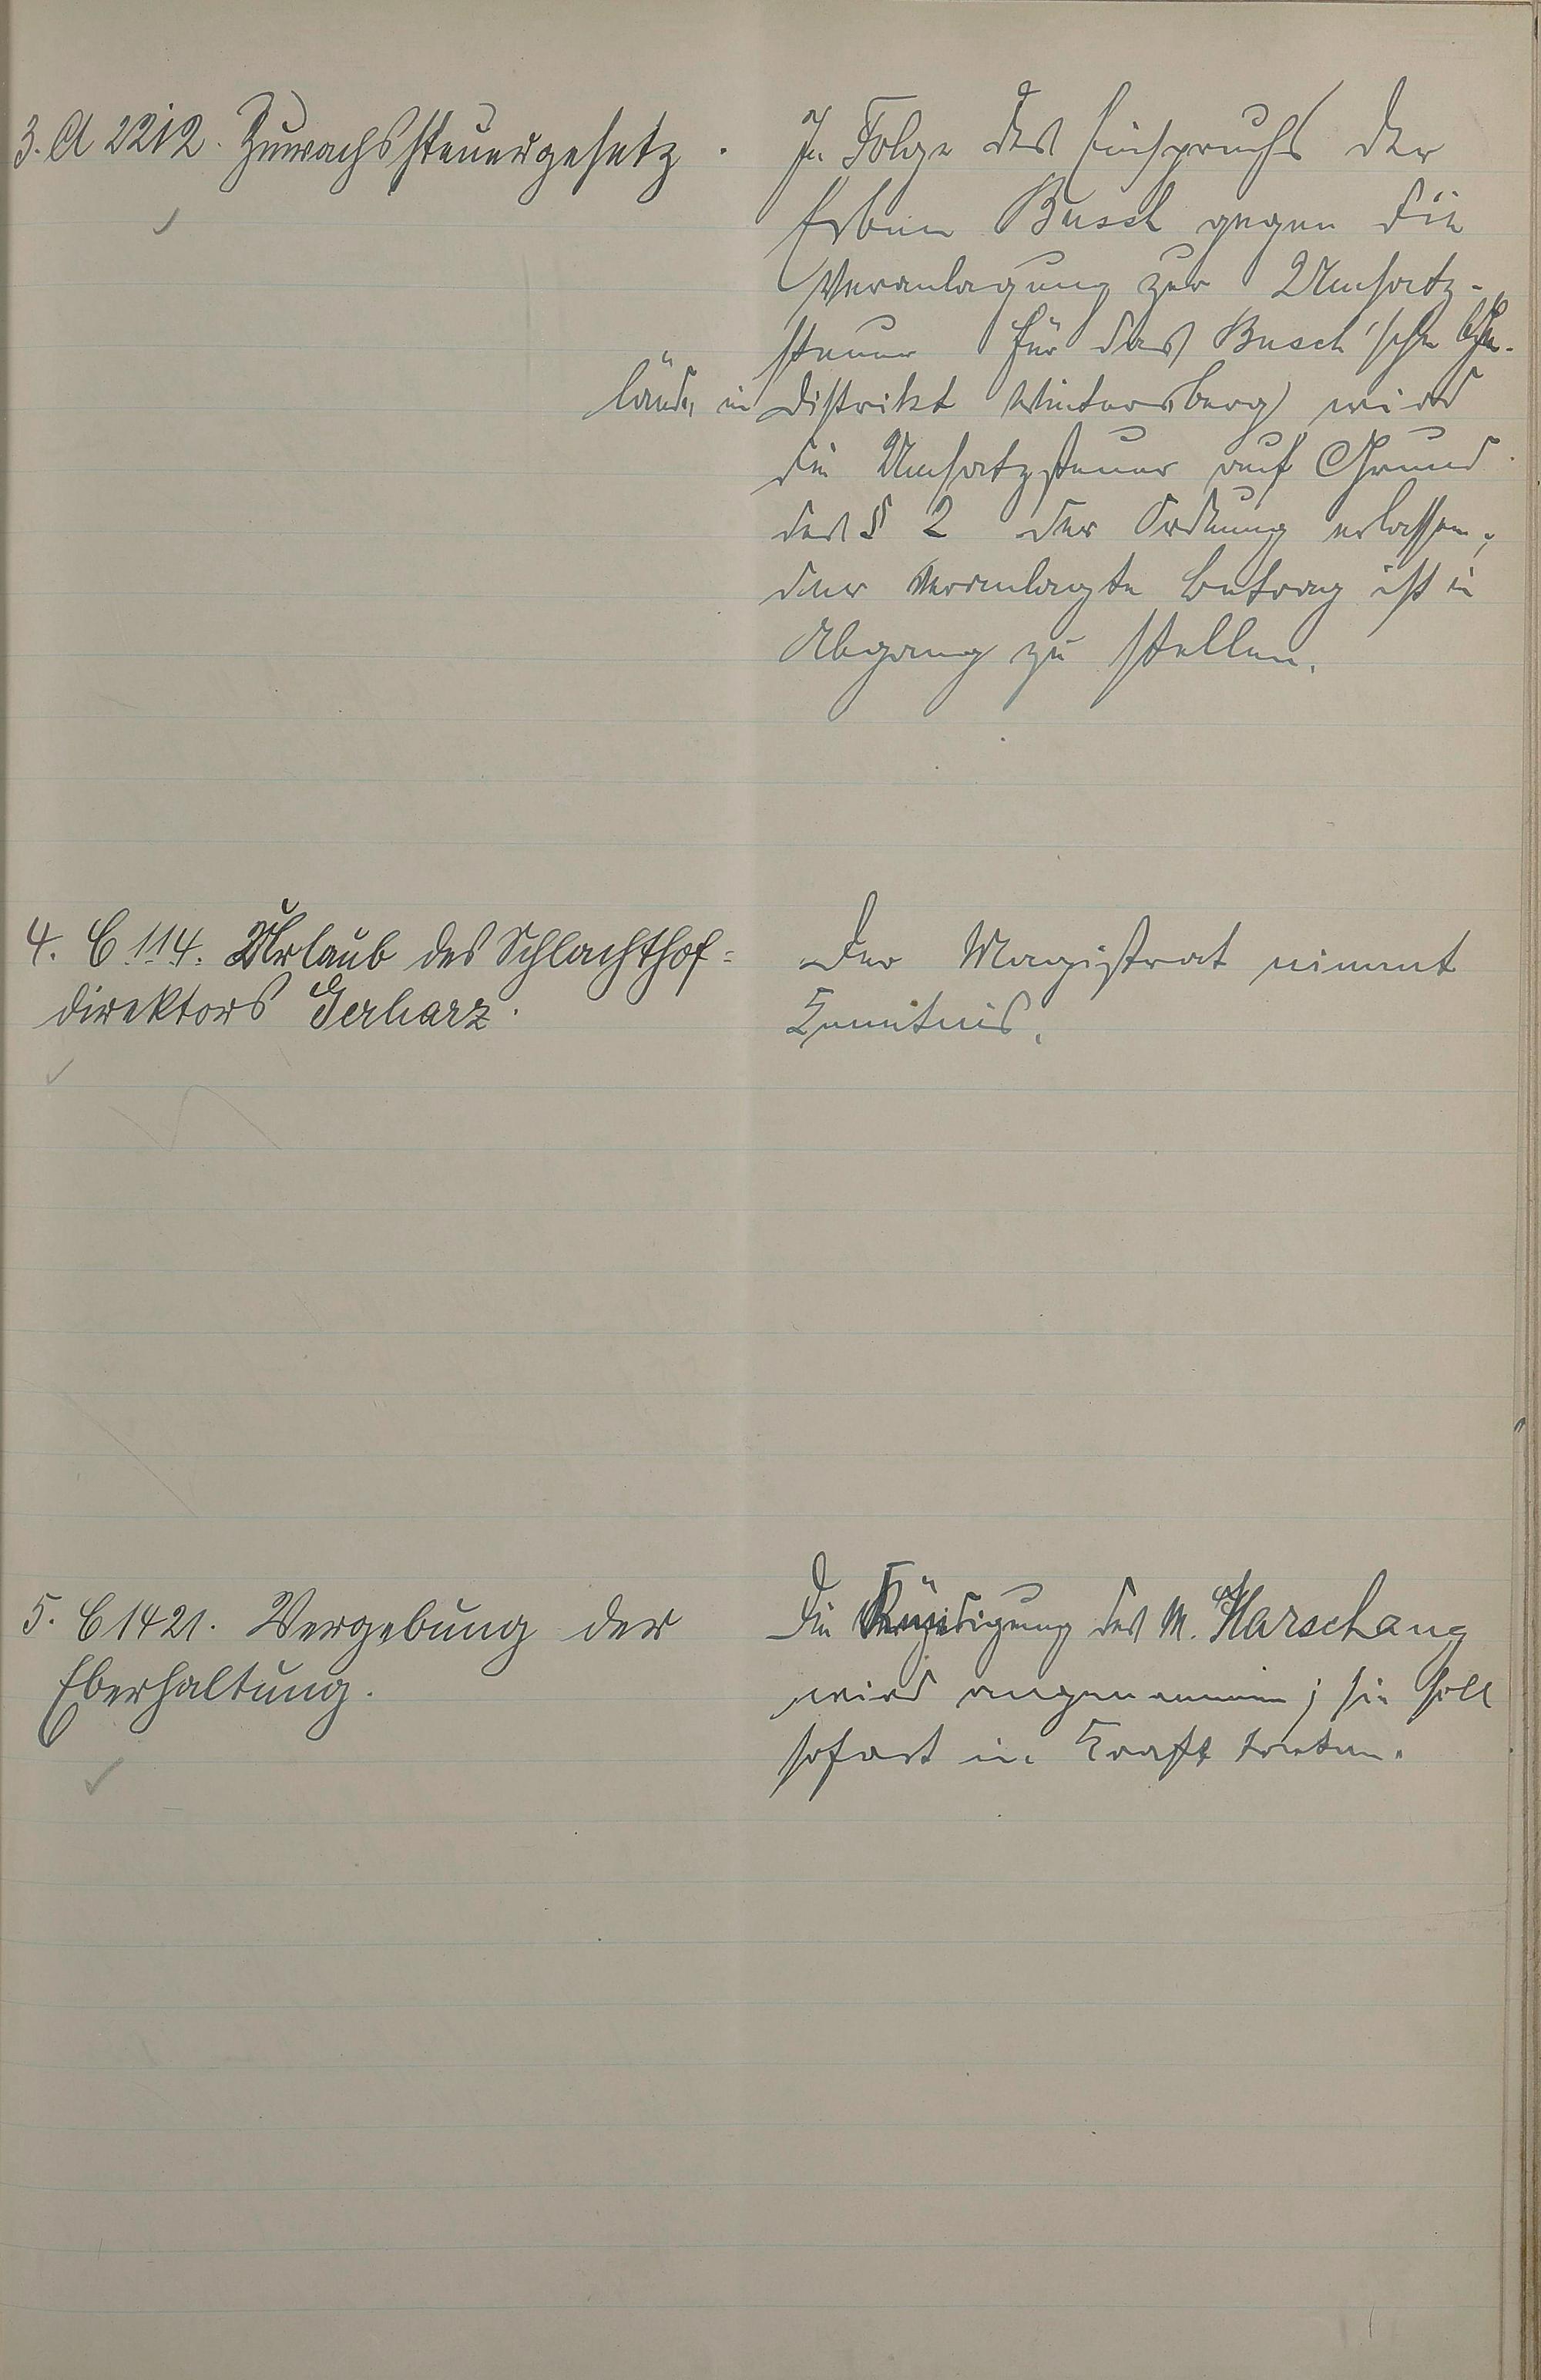 3. A 2212. Zuwachssteuergesetz.
In Folge des Einspruchs der
Erben Busch gegen die
Veranlagung zur Umsatz-
steuer für das Busch'sche Ge-
lände in Distrikt Wintersberg wird
die Umsatzsteuer auf Grund
des § 2 der Ordnung erlassen;
der veranlagte Betrag ist in
Abgang zu stellen.
4. C 114. Urlaub des Schlachthof=
direktors Gerharz.
Der Magistrat nimmt
Kenntnis.
5. C 1421. Vergebung der
Eberhaltung.
Die Kündigung des M. Harschang
wird angenommen; sie soll
sofort in Kraft treten.